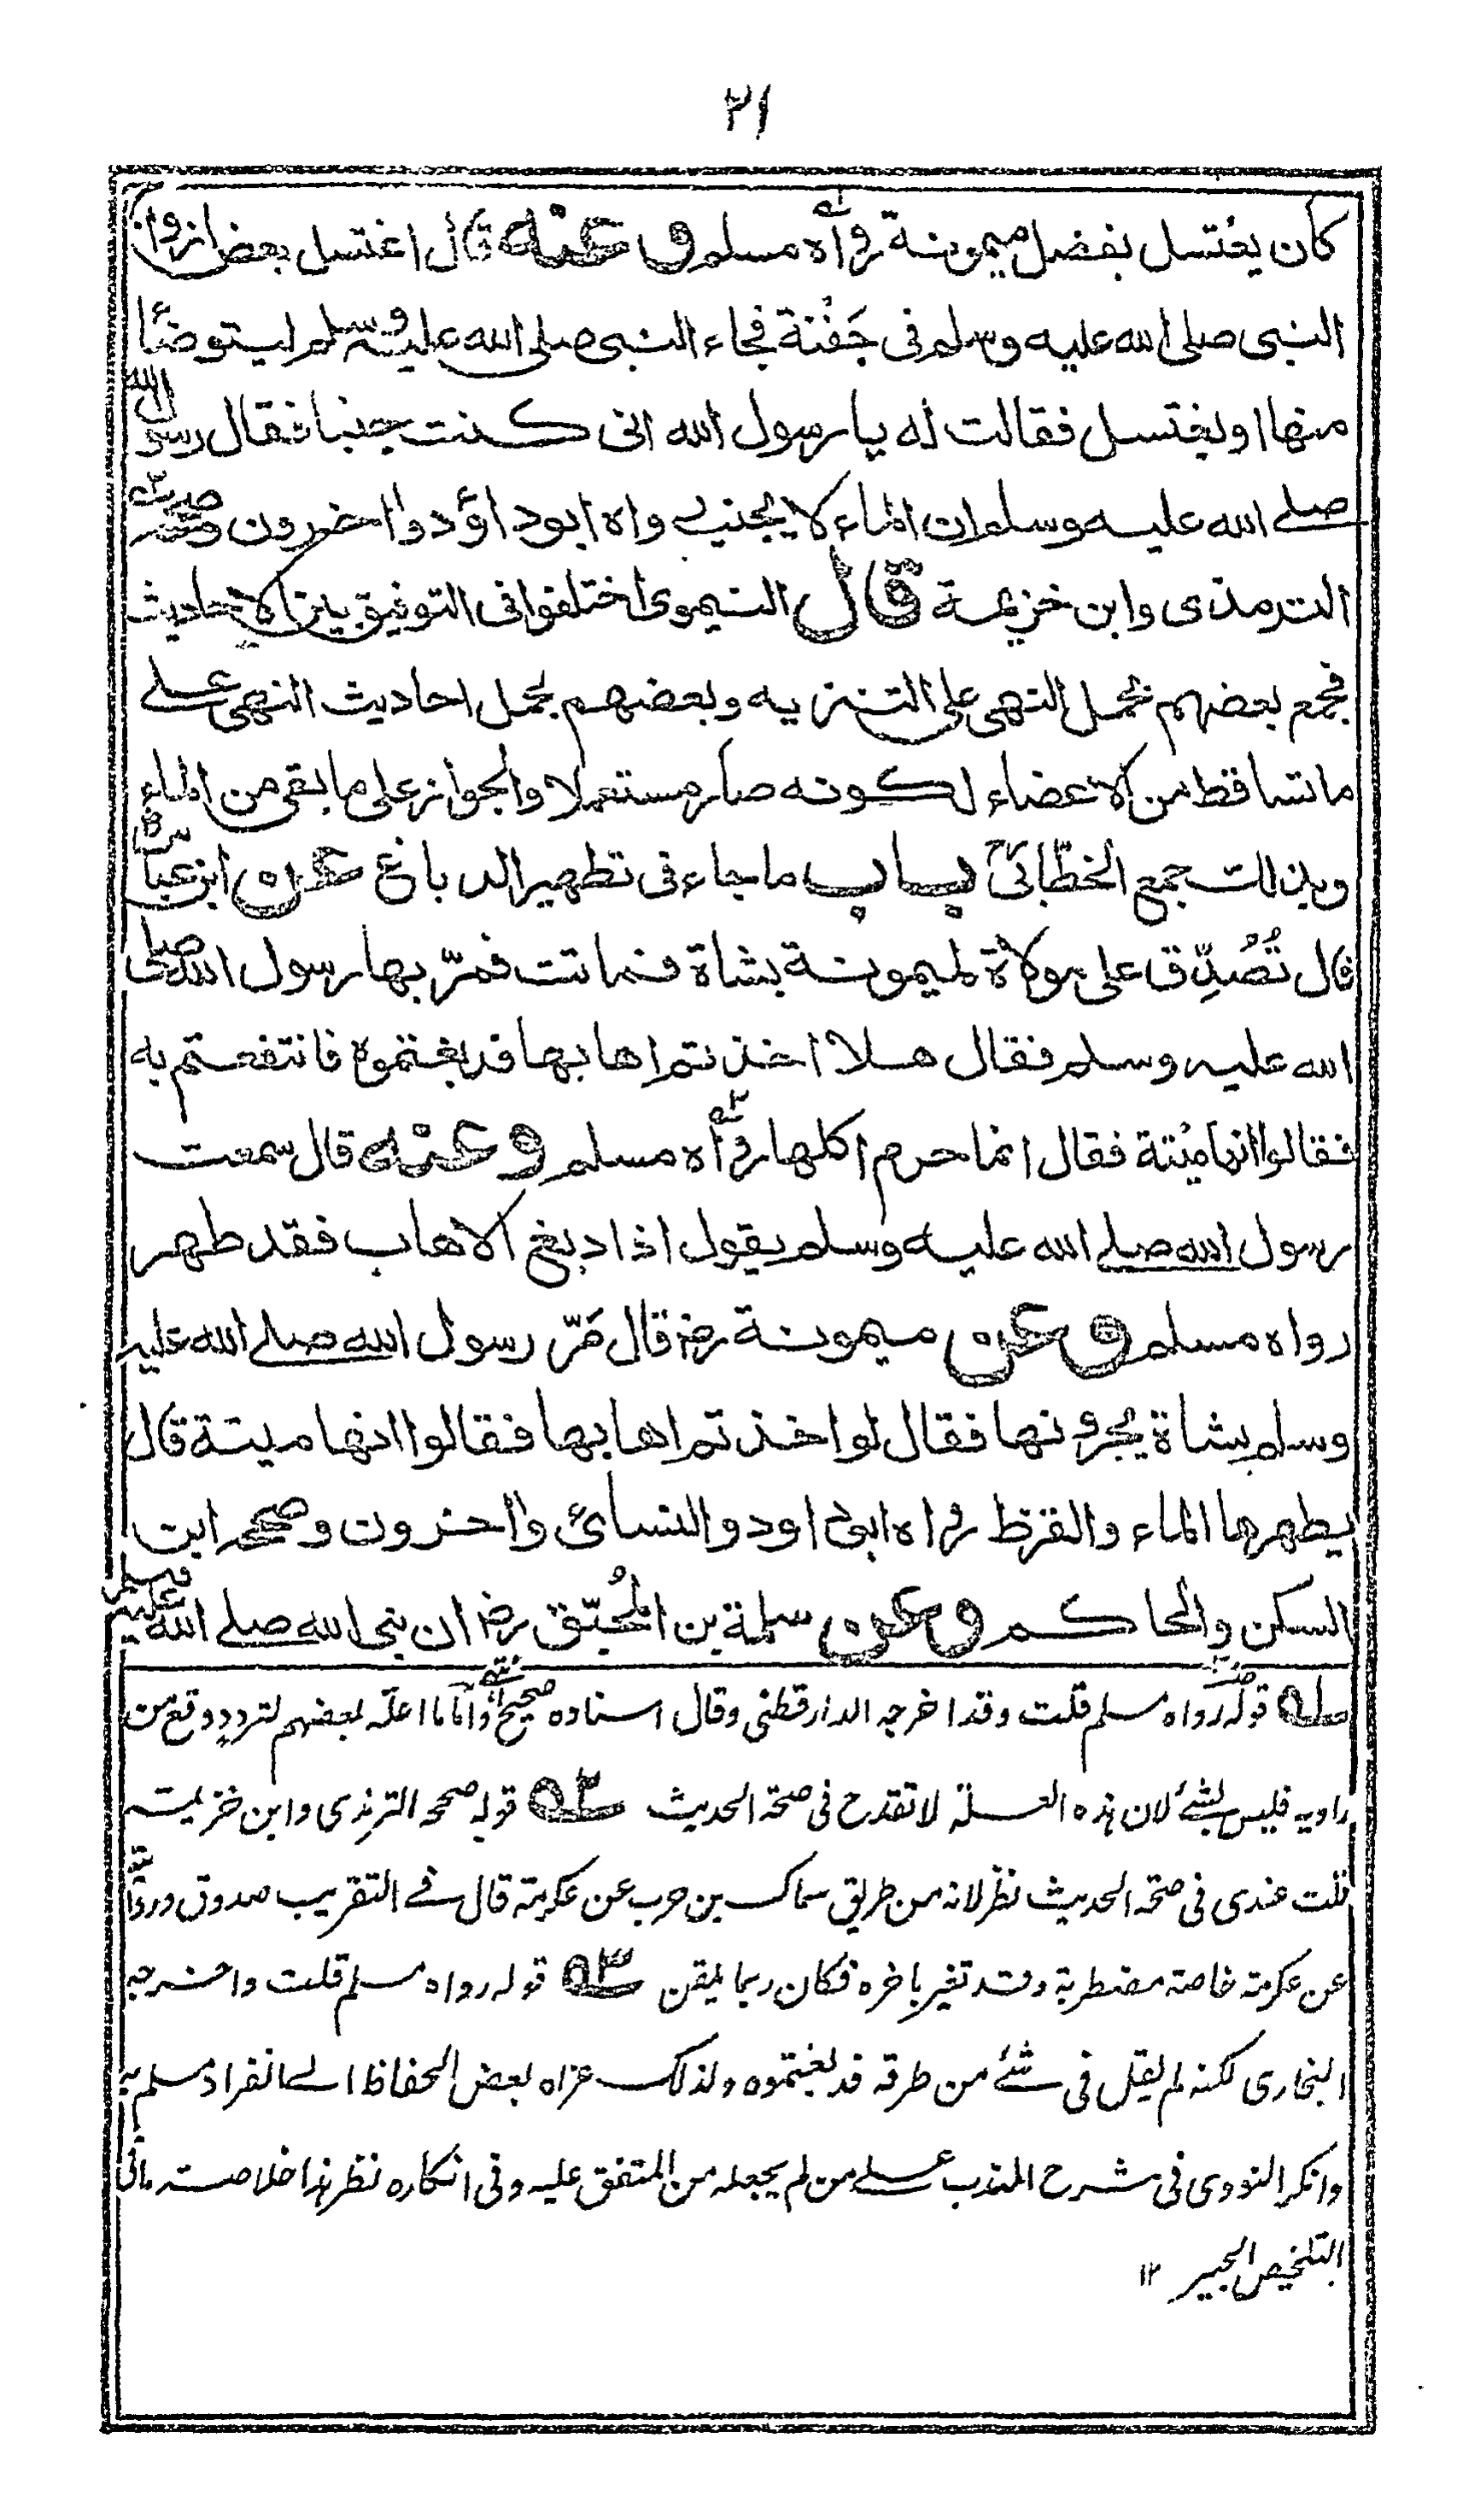 ٢١
كان يغتسل بفضل ميمونة رواه مسلم وعنه قال اغتسل بعض ازواج
النبى صلى الله عليه وسلم فى جَفْنَة فجاء النبى صلى الله عليه وسلم ليتوضأ
منها او يغتسل فقالت له يا رسول الله انى كنت جنبا فقال رسول الله
صلے الله عليه وسلم ان الماء لا يجنب رواه ابوداؤد واٰخرون وصححه
الترمذى وابن خزيمة قال النيموى اختلفوا فى التوفيق بين الاحاديث
فجمع بعضهم بحمل النهى على التنزيه وبعضهم بحمل احاديث النهى علے
ما تساقط من الاعضاء لكونه صار مستعملا والجواز على ما بقى من الماء
وبذلك جمع الخطّابىّ باب ما جاء فى تطهير الدباغ عن ابن عباس رض
قال تُصُدِّق على مولاة لميمونة بشاة فماتت فمرّ بها رسول الله صلى
الله عليه وسلم فقال هلا اخذتم اهابها فدبغتموه فانتفعتم به
فقالوا انها ميْتة فقال انما حرم اكلها رواه مسلم وعنه قال سمعت
رسول الله صلے الله عليه وسلم يقول اذا دبغ الاهاب فقد طهر
رواه مسلم وعن ميمونة رض قال مَرّ رسول الله صلے الله عليه
وسلم بشاة يجُرونها فقال لو اخذتم اهابها فقالوا انها ميتة قال
يطهرها الماء والقرظ رواه ابوداود والنسائ واٰخرون وصححه ابن
السكن والحاكم وعن سلمة بن المُحبّق رض ان نبى الله صلے الله عليه وسلم
سلہ قوله رواه مسلم قلت وقد اخرجه الدارقطنى وقال اسناده صحيح واما ما اعلّه بعضهم لتردد وقع من
راويه فليس بشئ لان هذه العلة لا تقدح فى صحة الحديث ٢ قوله صححه الترمذى وابن خزيمة
قلت عندى فى صحة الحديث نظر لانه من طريق سماك بن حرب عن عكرمة قال فے التقريب صدوق وروايته
عن عكرمة خاصة مضطربة وقد تغير باخره فكان ربما يلقن ٣ قوله رواه مسلم قلت واخرجه
البخارى لكنه لم يقل فى شئ من طرقه فدبغتموه ولذلك عزاه بعض الحفاظ الے انفراد مسلم به
وانكر النووى فى شرح المهذب علے من لم يجعله من المتفق عليه وفى انكاره نظر هذا خلاصة ما فى
التلخيص الحبير ١٢